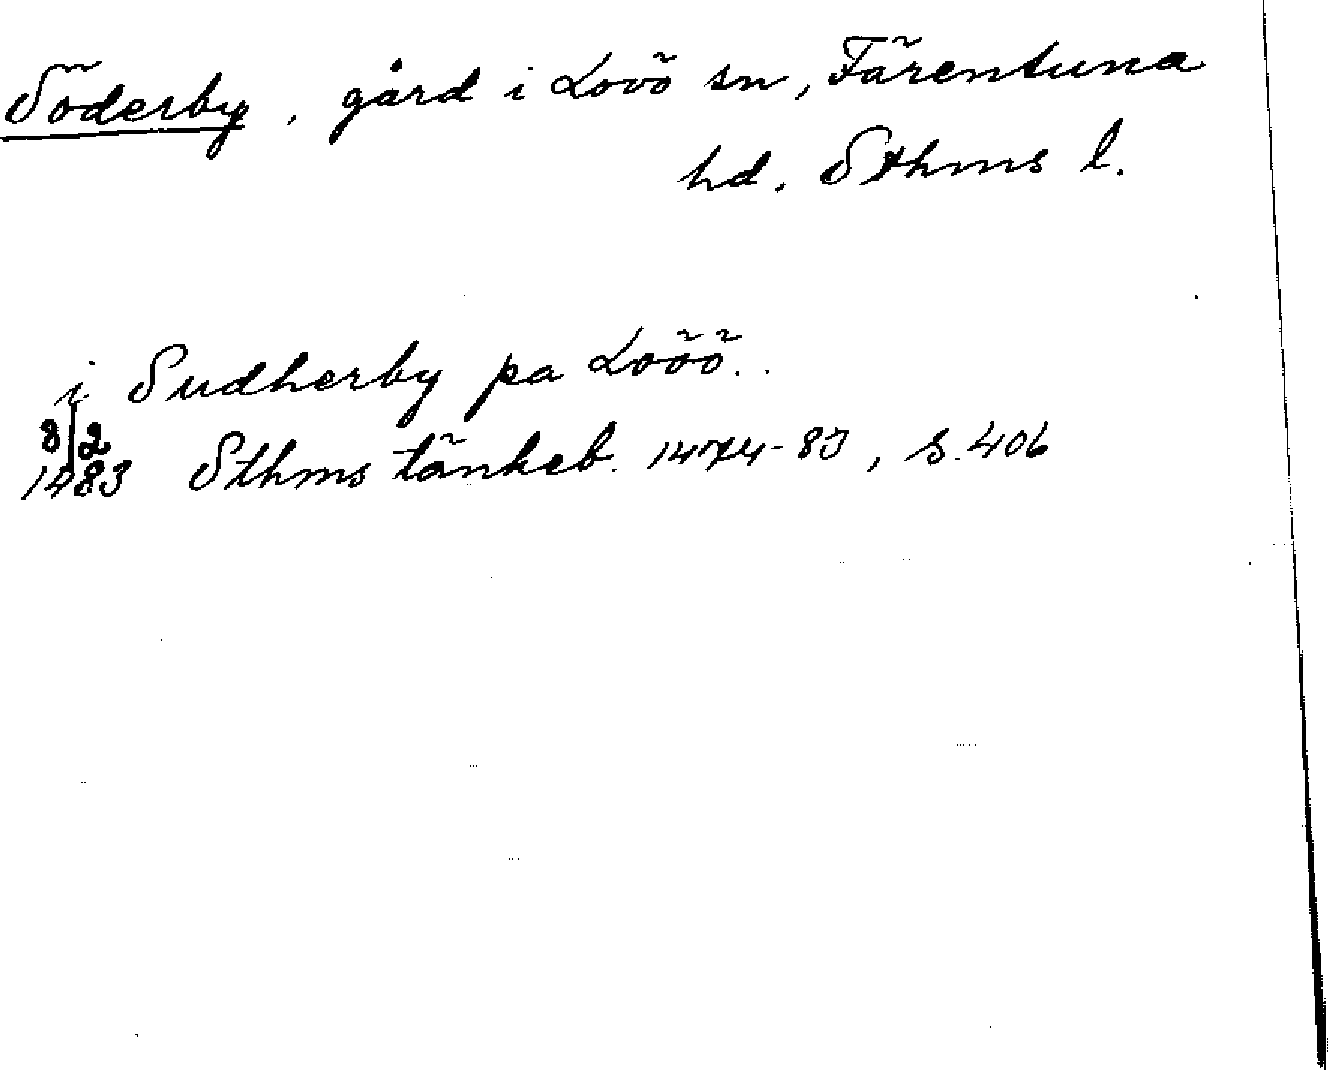 Söderby, gård i Lovö sn, Färentuna
hd. Sthms l.
i Sudherby pa Loöö..
8/2
1483 Sthms tänkeb. 1474-83, s. 406